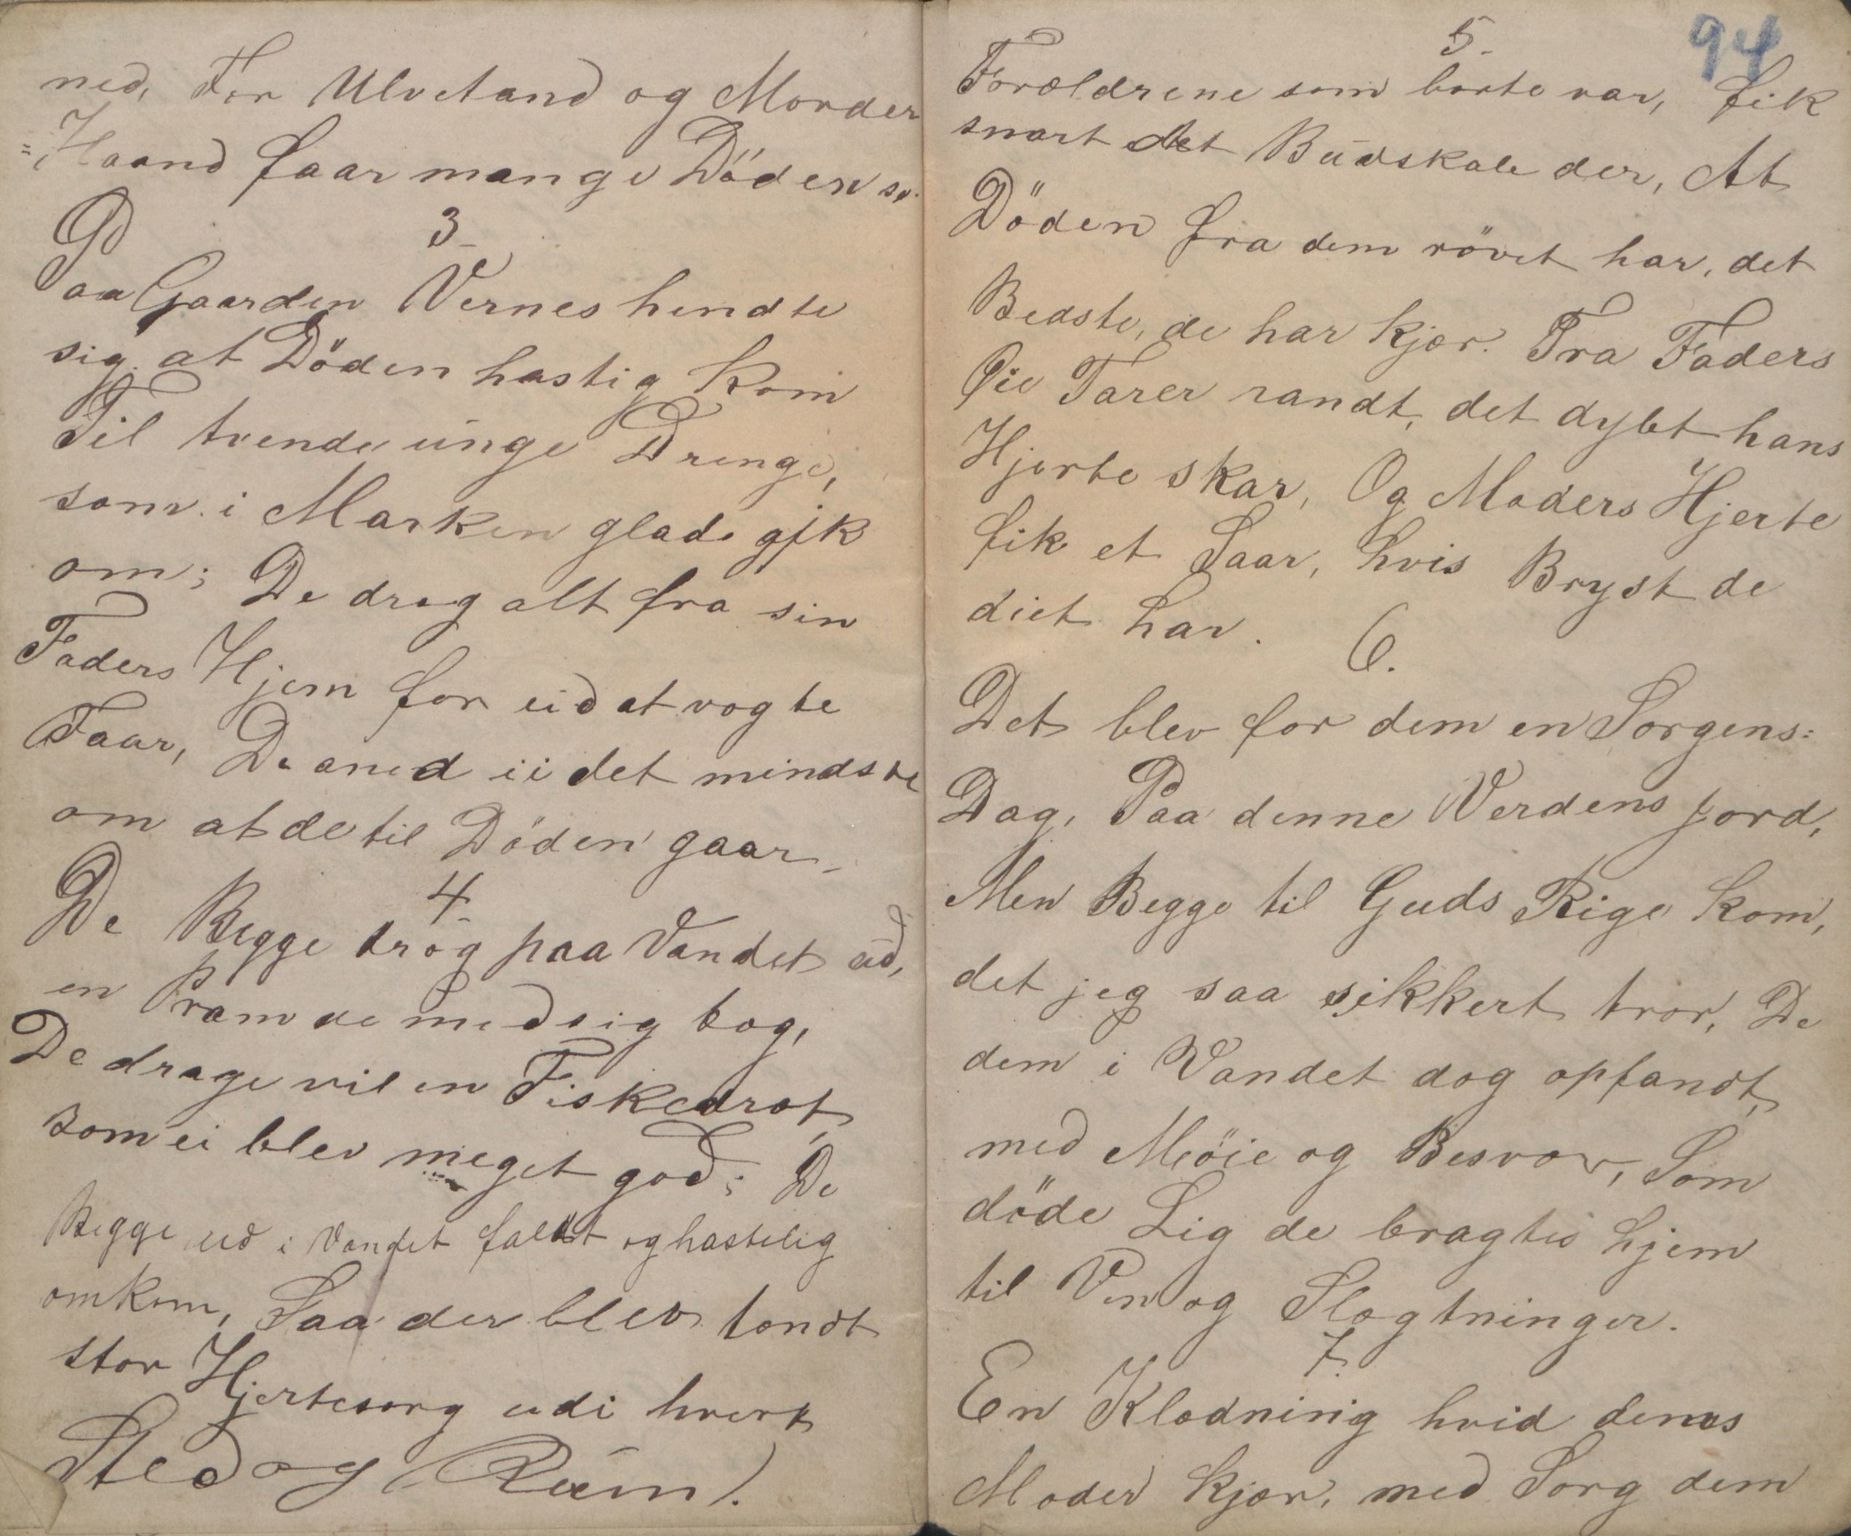 ned, For Ulvetand og Morder
=Haand faar mange Döden se.
3
Paa Gaarden Vernes hendte
sig, at Döden hastig kom
Til tvende unge Drenge,
som i Marken glade gik
om; De drog alt fra sin
Faders Hjem for ud at vogte
Faar, De aned ei det mindste
om at de til Döden gaar
4
De Begge drog paa Vandet ud,
en Pram de med sig tog,
De drage vil en Fiskedrot
som ei blev meget god; De
Begge ud i Vandet faldt og hastelig
omkom, Saa der blev tendt
stor Hjertesorg udi hvert
Sted og Rum.
94
5
Forældrene som borte var, fik
snart det Budskab der, At
Döden fra dem rövet har, det
Bedste, de har kjær. Fra Faders
Øie Tarer randt, det dybt hans
Hjerte skar, Og Moders Hjerte
fik et Saar, hvis Bryst de
diet har.
6.
Det blev for dem en Sorgens=
Dag, Paa denne Verdens Jord,
Men Begge til Guds Rige kom,
det jeg saa sikkert tror, De
dem i Vandet dog opfandt,
med Möie og Besvær, Som
döde Lig de bragtes hjem
til Ven og Slegtninger.
7
En Klædning hvid deres
Moder kjær, med Sorg dem